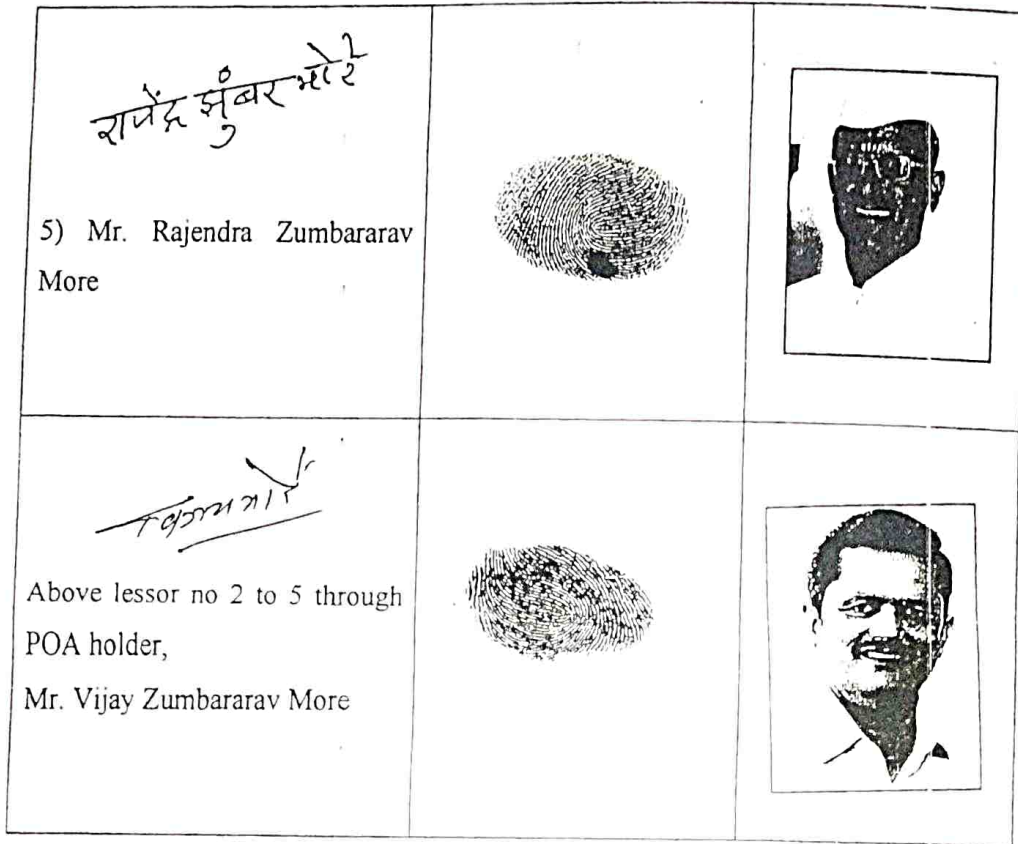 राजेंद्र झुंबर मोरे
5) Mr. Rajendra Zumbararav
More
मोरे
Above lessor no 2 to 5 through
POA holder,
Mr. Vijay Zumbararav More